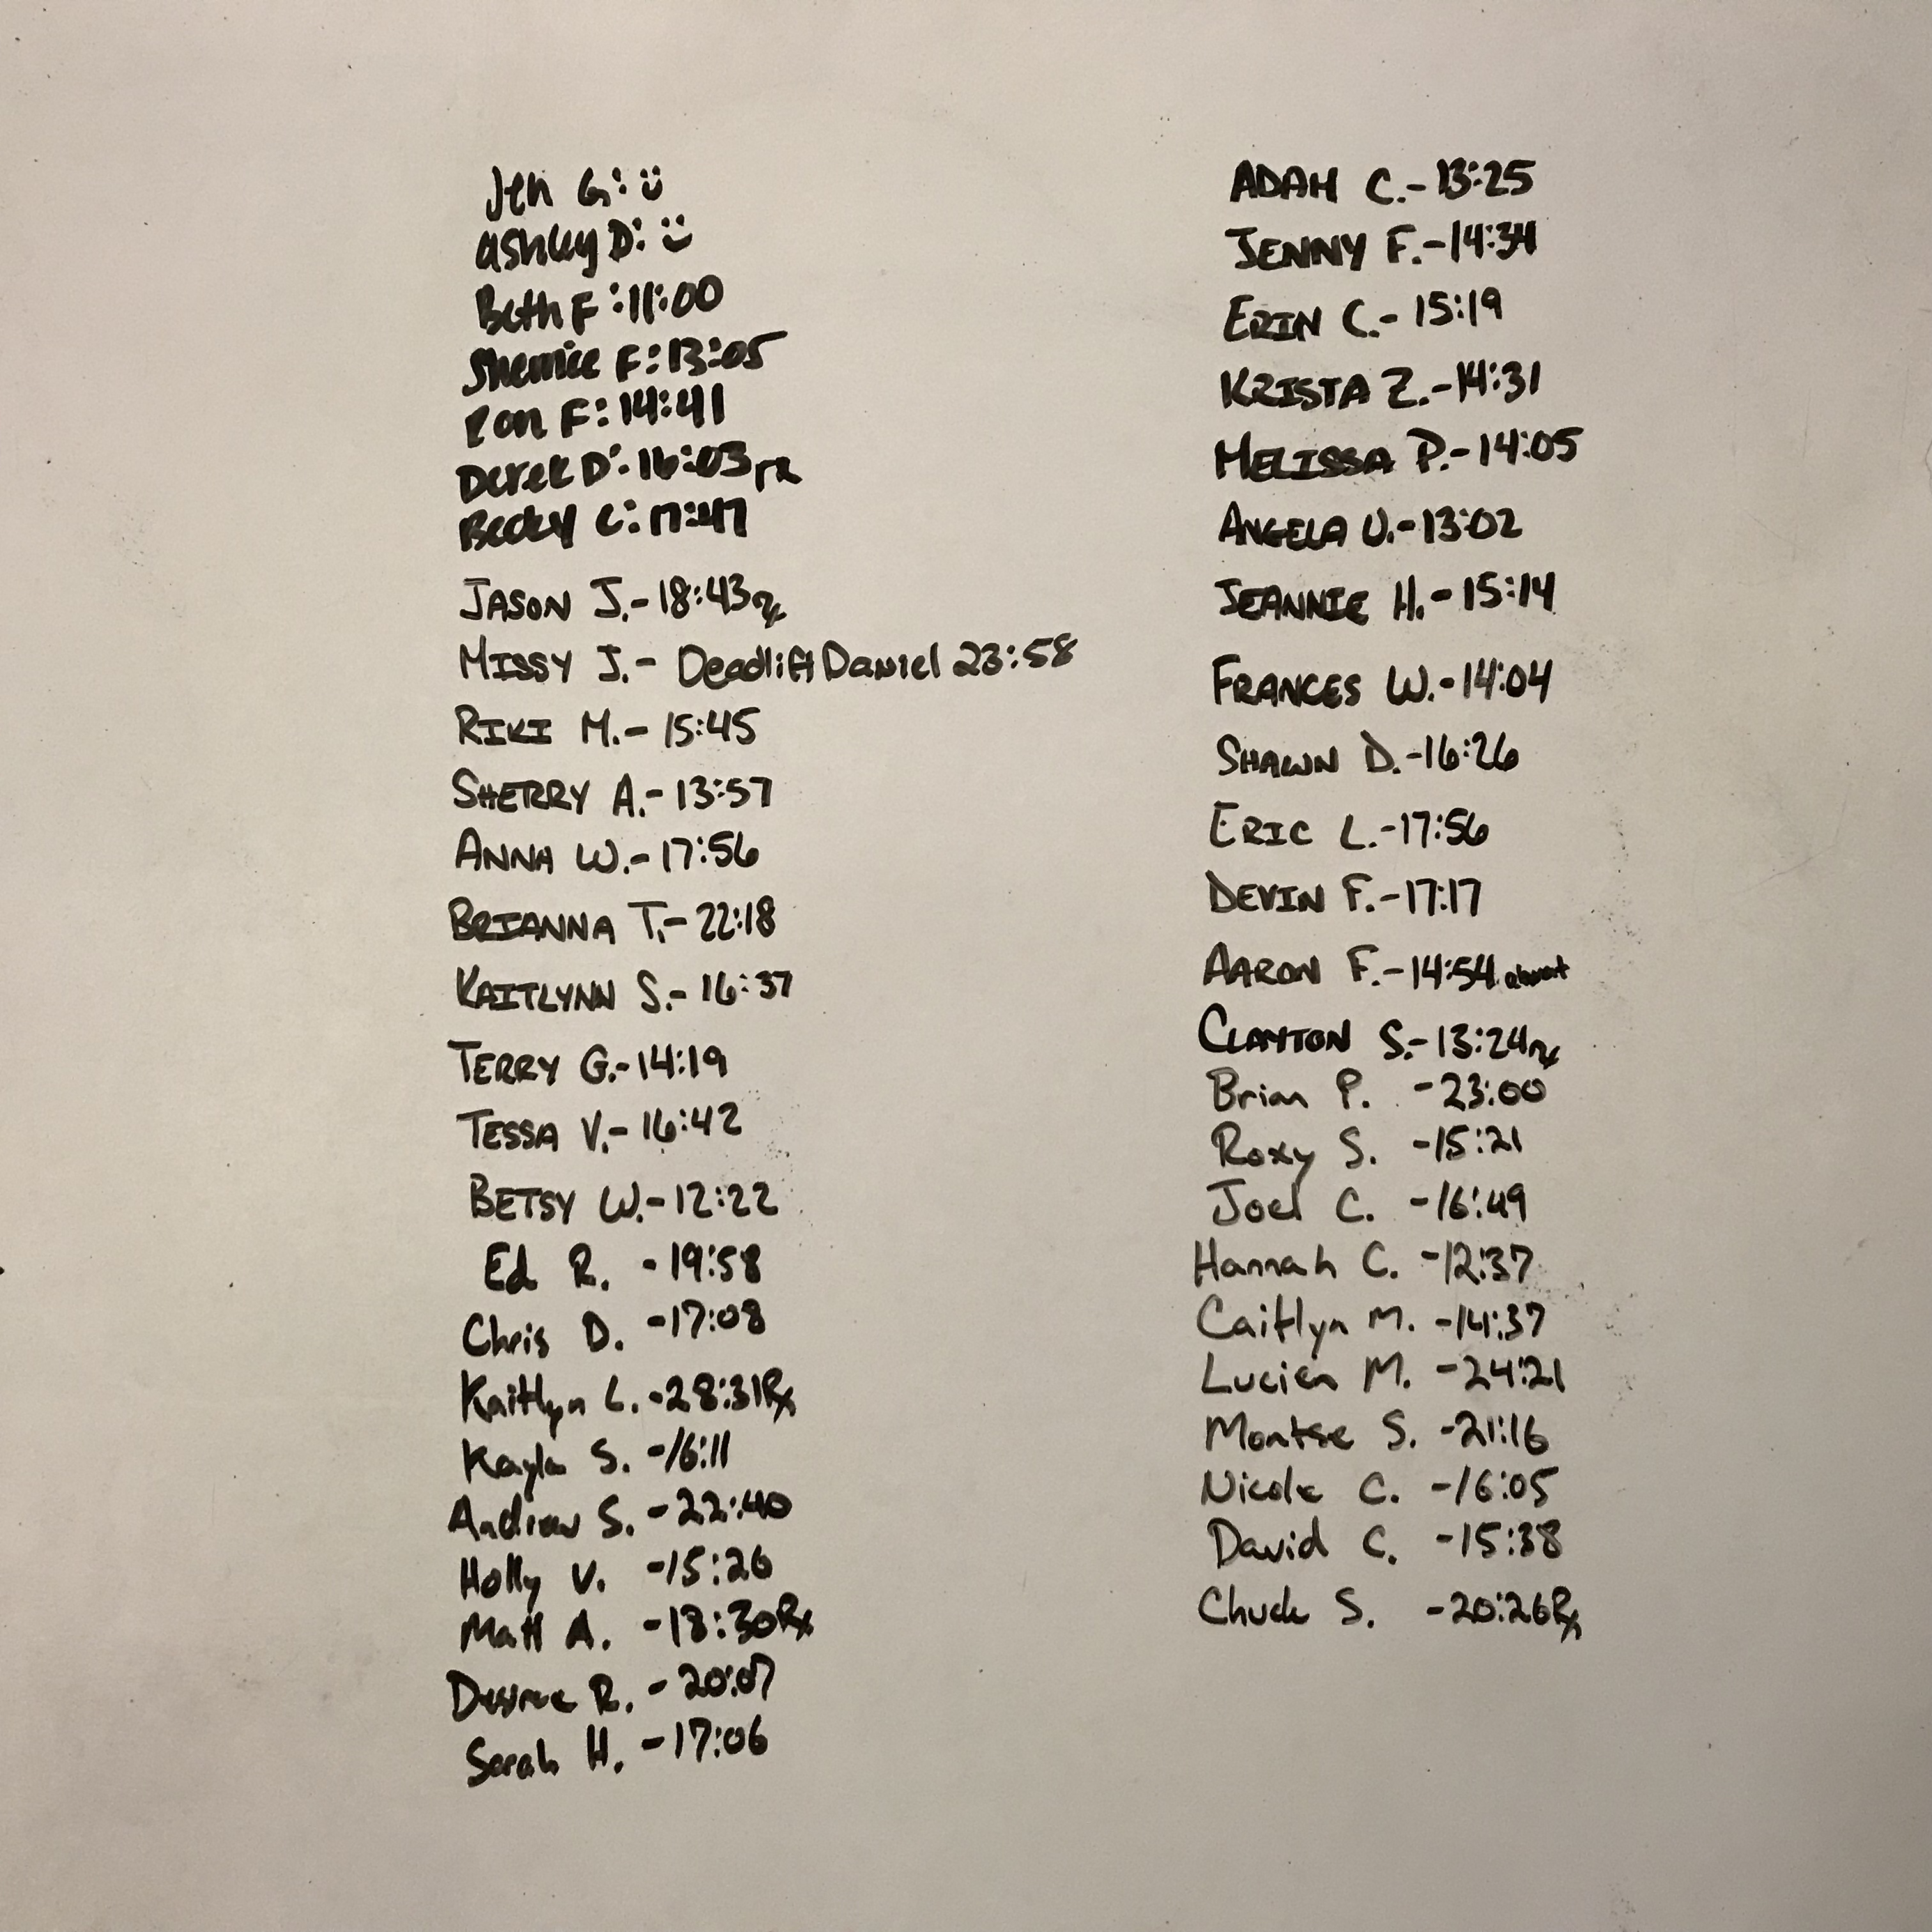 Jen G: :)
Ashley D: :)
Beth F: 11:00
F: 13:05
Ron F: 14:41
Derek D: 16:03 rx
Becky C: 17:47
JASON J.- 18:43 rx
MISSY J.- Deadlift Daniel 23:58
RIKI M.- 15:45
SHERRY A.- 13:57
ANNA W.- 17:56
BRIANNA T.- 22:18
KAITLYNN S.- 16:37
TERRY G.- 14:19
TESSA V.- 16:42
BETSY W.- 12:22
Ed R. - 19:58
Chris D. - 17:08
Kaitlyn L. - 28:31 Rx
Kayla S. - 16:11
Andrew S. - 22:40
Holly V. - 15:26
Matt A. - 18:30 Rx
Desiree R. - 20:07
Sarah H. - 17:06
ADAM C.- 13:25
JENNY F.- 14:34
ERIN C.- 15:19
KRISTA Z.- 14:31
MELISSA P.- 14:05
ANGELA U.- 13:02
JEANNIE H.- 15:14
FRANCES W.- 14:04
SHAWN D.- 16:26
ERIC L.- 17:56
DEVIN F.- 17:17
AARON F.- 14:54
CLAYTON S.- 13:24 rx
Brian P. - 23:00
Roxy S. - 15:21
Joel C. - 16:49
Hannah C. - 12:37
Caitlyn M. - 14:37
Lucien M. - 24:21
Montse S. - 21:16
Nicole C. - 16:05
David C. - 15:38
Chuck S. - 20:26 Rx